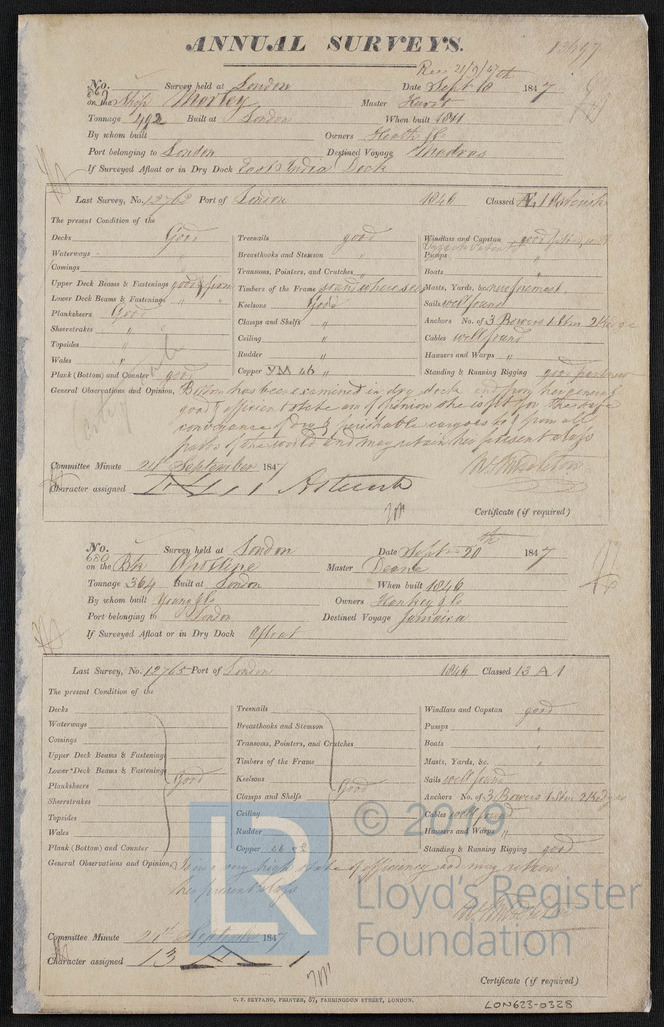 ANNUAL SURVEYS.
Rec 21/9/47
No. Survey held at London Date Sept 10th 1847
on the Ship Morley Master
Tonnage 492 Built at London When built 1811
By whom built Owners Heath & Co
Port belonging to London Destined Voyage Madras
If Surveyed Afloat or in Dry Dock East India Dock
Last Survey, No. 12762 Port of London 1846 Classed Æ 1 Asterisk
The present Condition of the
Decks Good Treenails good Windlass and Capstan good
Waterways Breasthooks and Stemson Pumps "
Comings Transoms, Pointers, and Crutches " Boats "
Upper Deck Beams & Fastenings good & firm Timbers of the Frame sound where seen Masts, Yards, &c.
Lower Deck Beams & Fastenings " " Keelsons Good Sails well found
Planksheers Good Clamps and Shelfs " Anchors No. of 3 Bowers 1 Stm 2 Kedges
Sheerstrakes " Ceiling " Cables well found
Topsides " Rudder " Hawsers and Warps "
Wales " Copper YM 46 Standing & Running Rigging good
Plank (Bottom) and Counter good
General Observations and Opinion, Bottom has been examined in dry dock and from her general
good & efficient state am of opinion she is fit for the safe
conveyance of dry & perishable cargoes to & from all
parts of the world and may retain her present class
Committee Minute 24th September 1847
Character assigned Æ 1 Asterisk
Certificate (if required)
No. 680 Survey held at London Date Sept 20th 1847
on the Bk Master Deane
Tonnage 364 Built at London When built 1846
By whom built Young & Co Owners Hankey & Co
Port belonging to London Destined Voyage Jamaica
If Surveyed Afloat or in Dry Dock Afloat
Last Survey, No. 12765 Port of London 1846 Classed 13 A 1
The present Condition of the
Decks Treenails Windlass and Capstan good
Waterways Breasthooks and Stemson Pumps "
Comings Transoms, Pointers, and Crutches Boats "
Upper Deck Beams & Fastenings Timbers of the Frame Masts, Yards, &c. "
Lower Deck Beams & Fastenings Good Keelsons Good Sails well found
Planksheers Clamps and Shelfs Anchors No. of 3 Bowers 1 Stm 2 Kedges
Sheerstrakes Ceiling Cables well found
Topsides Rudder Hawsers and Warps "
Wales Copper Standing & Running Rigging good
Plank (Bottom) and Counter
General Observations and Opinion, Is in a very high state of efficiency and may retain
her present class
Committee Minute 24th September 1847
Character assigned 13 A 1
Certificate (if required)
C. F. SEYFANG, PRINTER, 57, FARRINGDON STREET, LONDON.
LON623-0328
LR © 2019
Lloyd's Register
Foundation